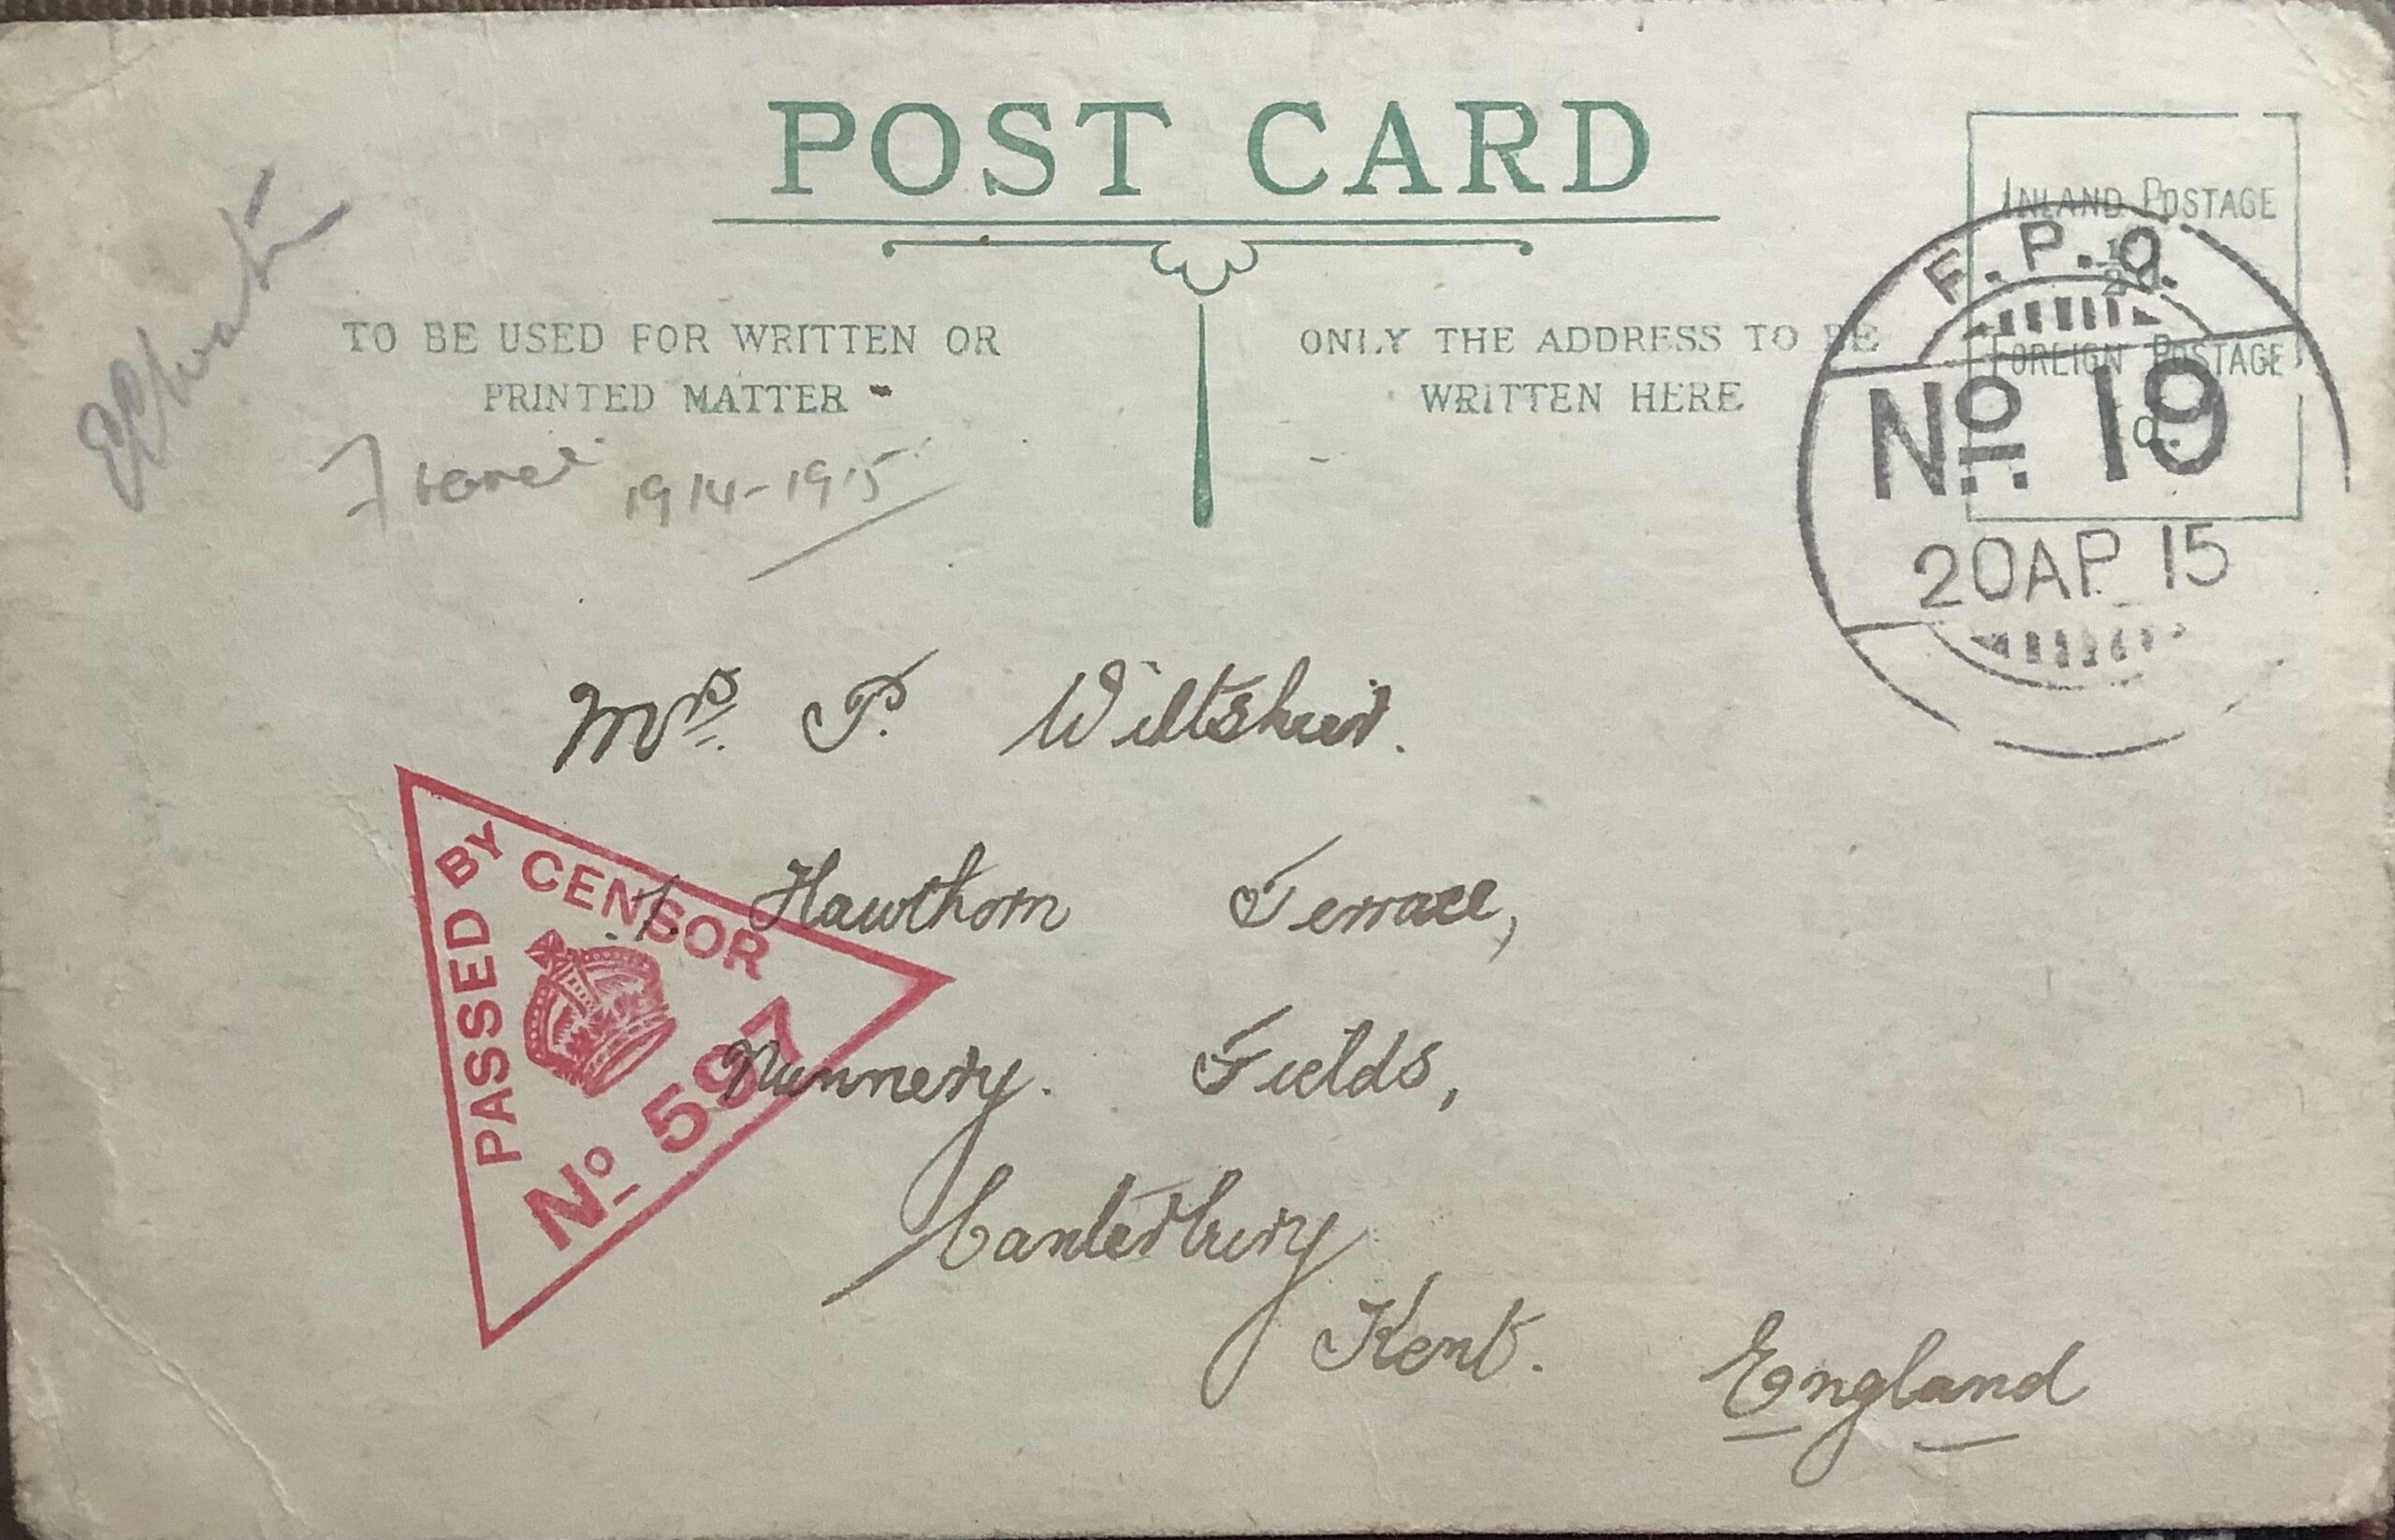 POST CARD
TO BE USED FOR WRITTEN OR
PRINTED MATTER
ONLY THE ADDRESS TO BE
WRITTEN HERE
INLAND POSTAGE
½d.
FOREIGN POSTAGE
F.P.O.
No 19
20 AP 15
1914-1915
Mrs. P. Wiltshier.
7. Hawthorn Terrace,
Nunnery. Fields,
Canterbury
Kent. England
PASSED BY CENSOR
No 597